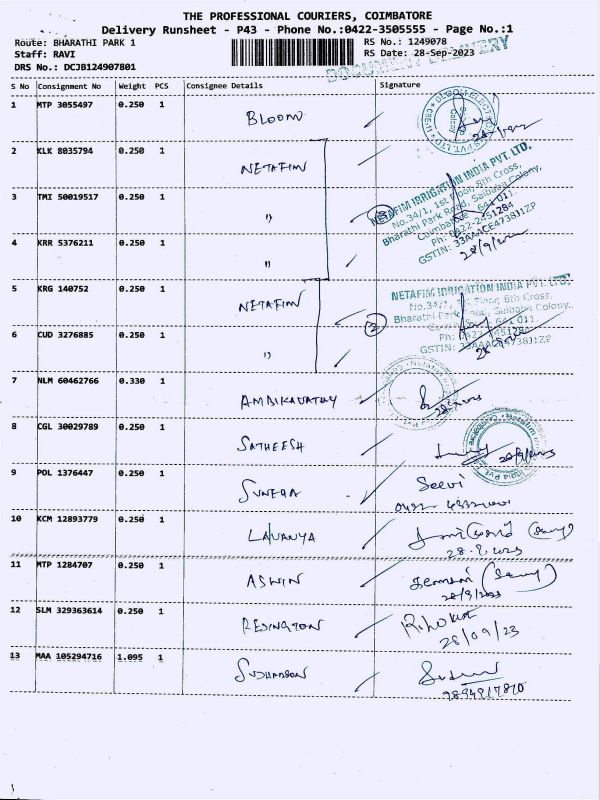 THE PROFESSIONAL COURIERS, COIMBATORE
Delivery Runsheet - P43 - Phone No.:0422-3505555 - Page No.:1
Route: BHARATHI PARK 1
RS No.: 1249078
Staff: RAVI
RS Date: 28-Sep-2023
DRS No.: DCJB124907801
DOCUMENT DELIVERY
S No Consignment No Weight PCS Consignee Details Signature
1 MTP 3055497 0.250 1 BLOOM
2 KLK 8035794 0.250 1 NETAFIM
NETAFIM IRRIGATION INDIA PVT. LTD.
No.34/1, 1st Floor, 8th Cross,
Bharathi Park Road, Saibaba Colony,
Coimbatore - 641 011.
Ph: 0422-2451284
GSTIN: 33AAACE4738J1ZP
28/9/
3 TMI 50019517 0.250 1 〃 3
4 KRR 5376211 0.250 1 〃
5 KRG 140752 0.250 1 NETAFIM
NETAFIM IRRIGATION INDIA PVT. LTD.
No.34/1, 1st Floor, 8th Cross,
Bharathi Park Road, Saibaba Colony,
Coimbatore - 641 011.
Ph: 0422-2451284
GSTIN: 33AAACE4738J1ZP
6 CUD 3276885 0.250 1 〃 2
7 NLM 60462766 0.330 1 AMBIKAVATHY
8 CGL 30029789 0.250 1 SATHEESH
9 POL 1376447 0.250 1 SUNEHA Seevi
10 KCM 12893779 0.250 1 LAVANYA
28.9.2023
11 MTP 1284707 0.250 1 ASWIN
28/9/2023
12 SLM 329363614 0.250 1 REDINGTON
28/09/23
13 MAA 105294716 1.095 1 SUDHARSON
9894917870